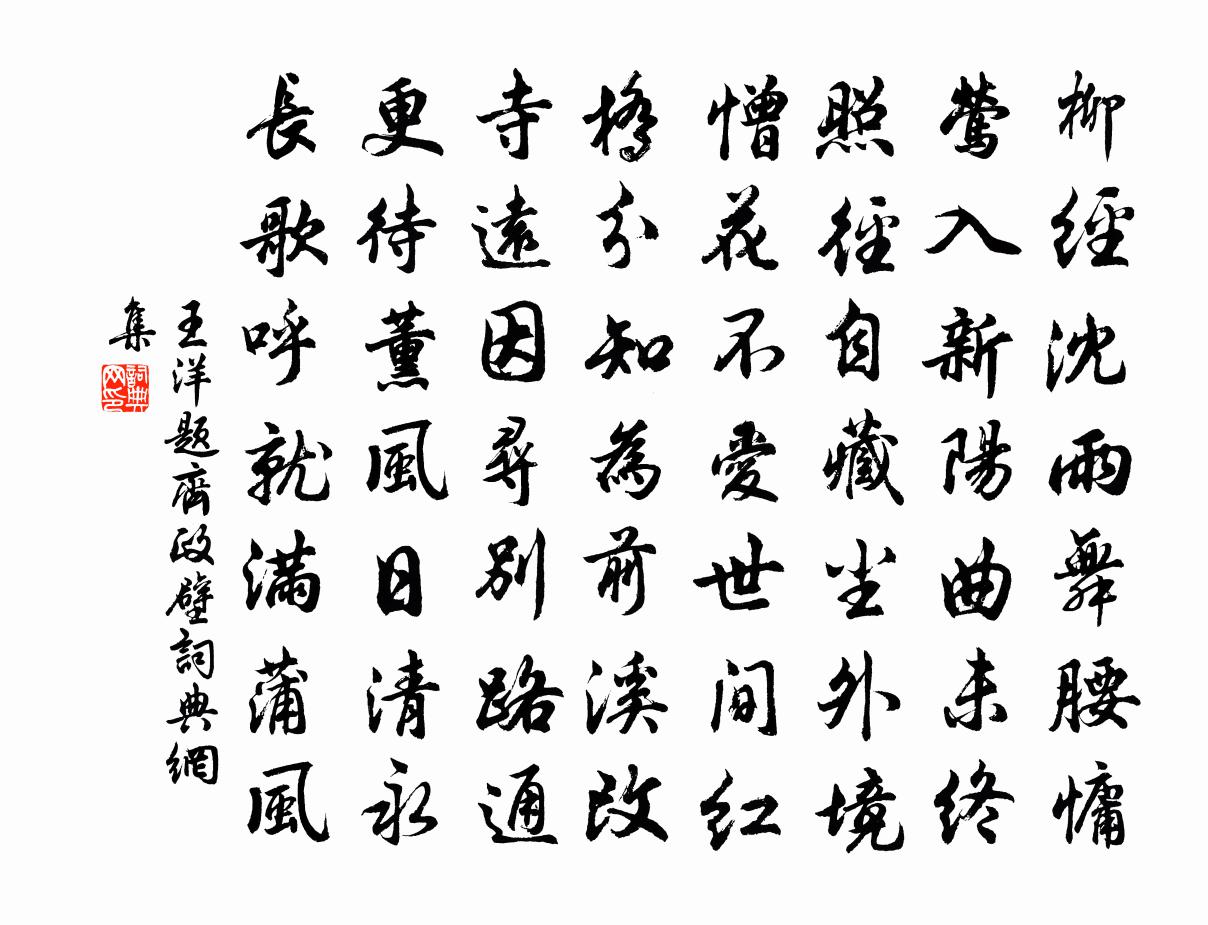 柳經沈雨舞腰慵
鶯入新陽曲未終
照徑自藏尘外境
憎花不愛世间红
橋分知為前溪改
寺遠因尋別路通
更待薰風日清永
長歌呼就滿蒲風
王洋题齊政壁詞典網
集
詞典
网印